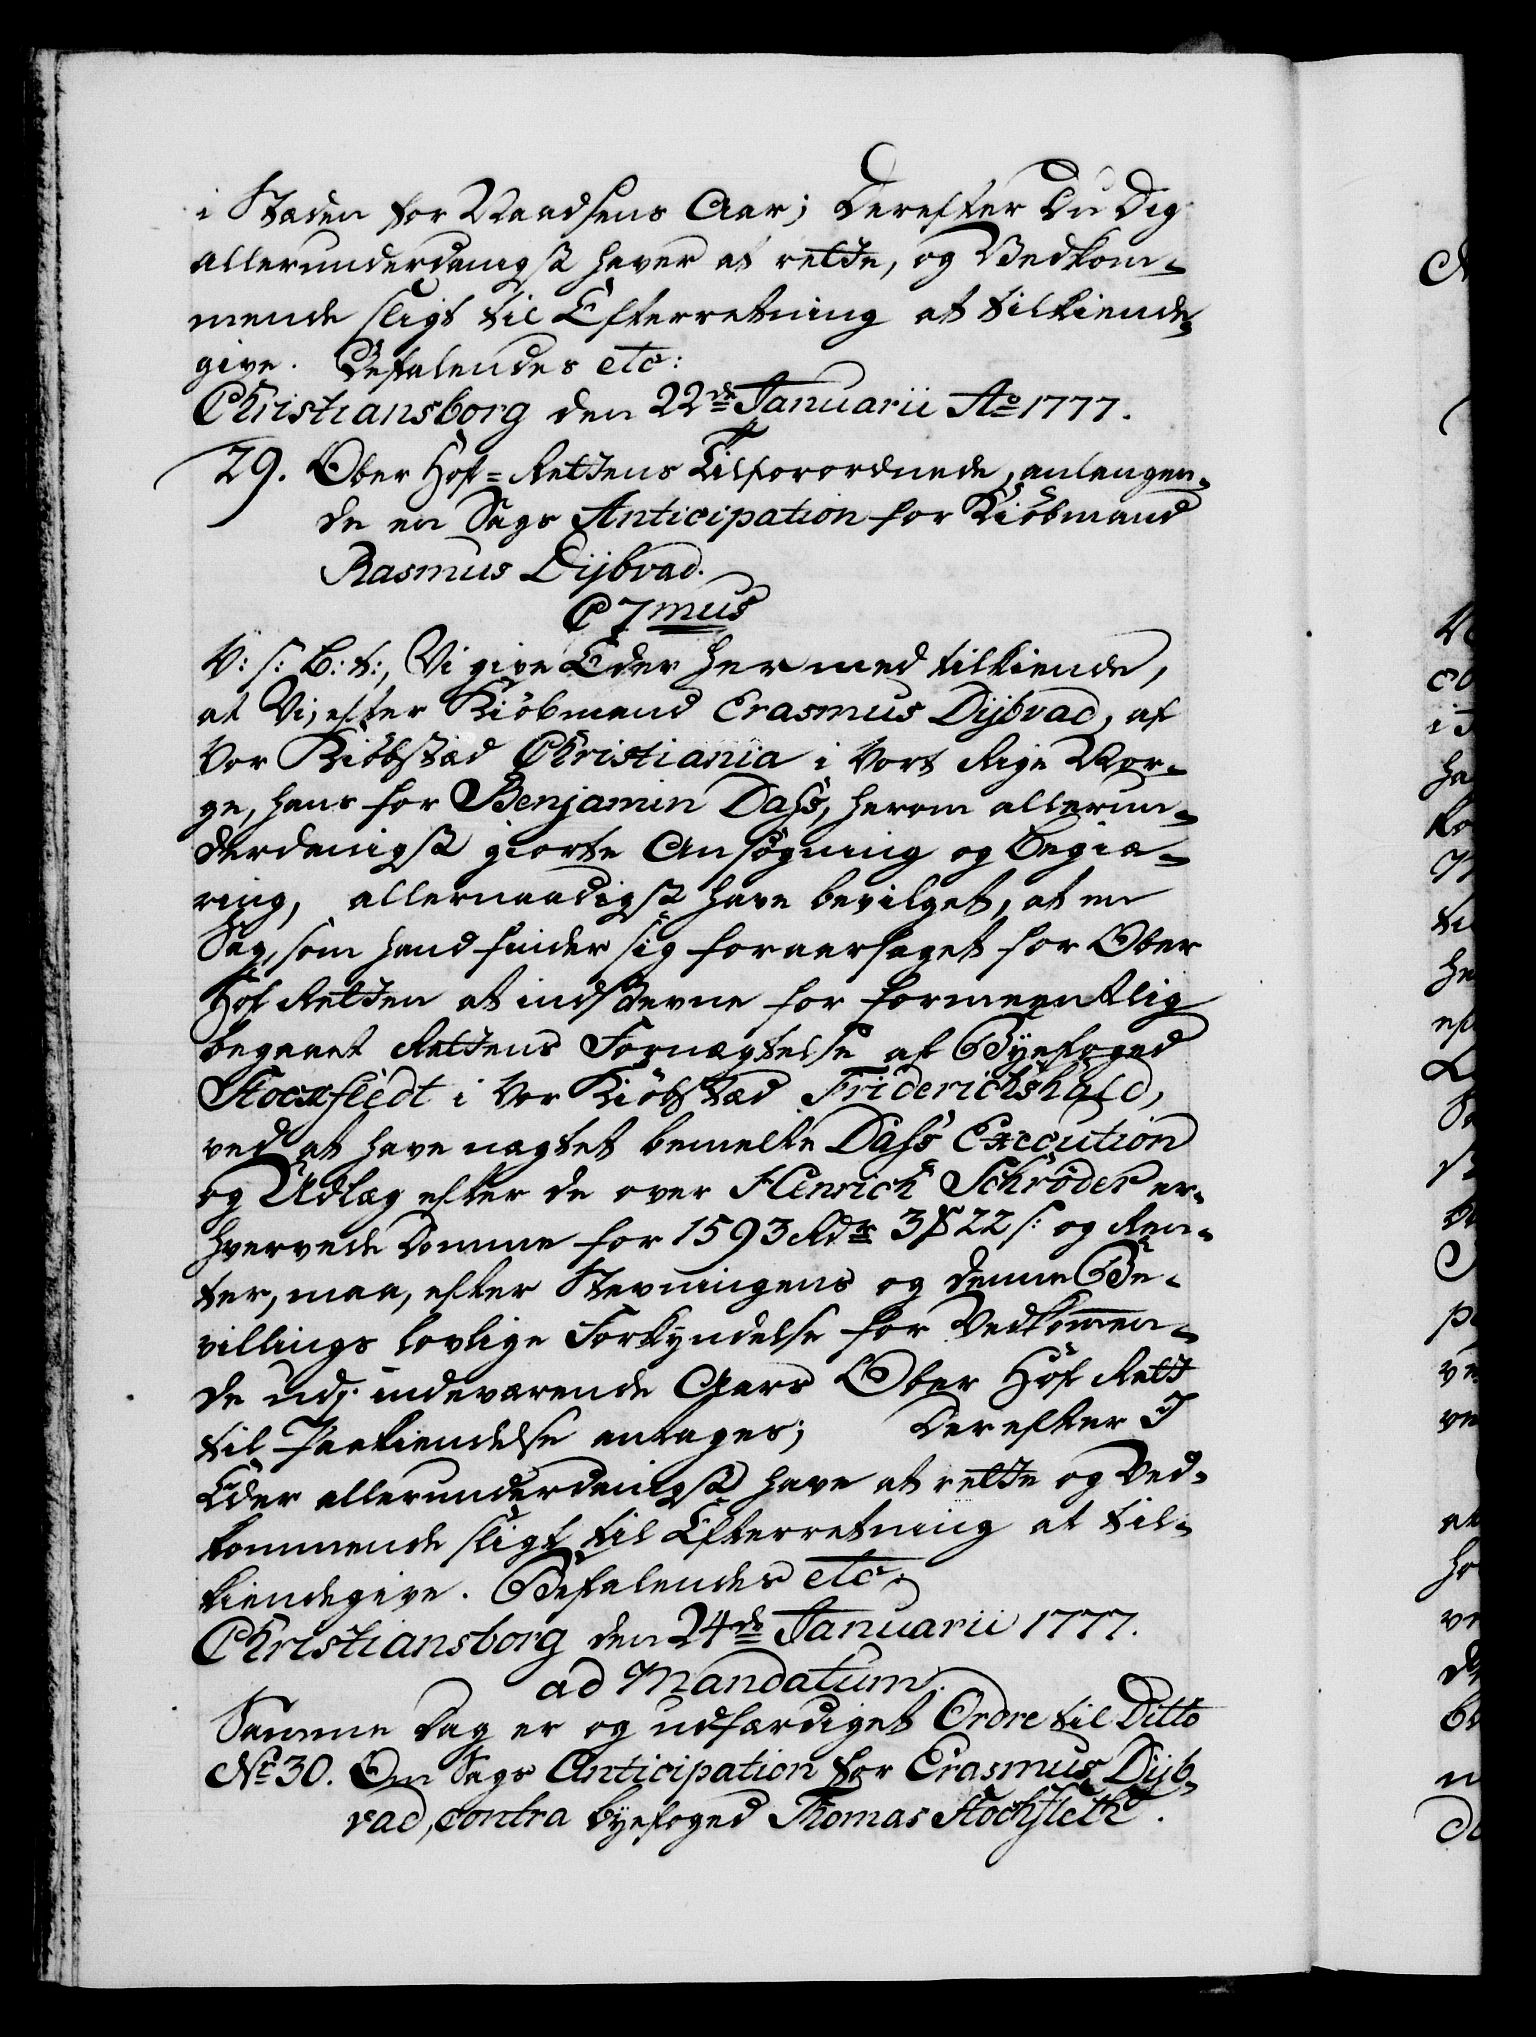 i Staden for Naadsens Aar; Derefter Du Dig
allerunderdanigst haver at rette, og Vedkom-
mende sligt til Efterretning at tilkiende-
give. Befalendes etc:
Christiansborg den 22de Januarii Ao 1777.
29. Ober Hof-Rettens Tilforordnede, anlangen-
de en Sags Anticipation for Kiöbmand
Rasmus Dijbvad.
C 7mus
V: S: G: t:, Vi give Eder hermed tilkiende,
at Vi, efter Kiöbmand Erasmus Dijbvad, af
Vor Kiöbstad Christiania i Vort Rige Nor-
ge, hans for Benjamin Dass, herom allerun-
derdanigst giorte Ansögning og Begiæ-
ring, allernaadigst have bevilget, at en
Sag, som hand finder sig foraarsaget for Ober
Hof Retten at indstevne for formeentlig
begaaet Rettens Fornægtelse af Byefoged
Stocxfledt i Vor Kiöbstad Friderichshald,
ved at have nægtet bemelte Dass Execution
og Udlæg efter de over Henrich Schröder er-
hvervede Domme for 1593 Rdr 3 ₰ 22 s: og Ren-
ter, maa, efter Stevningens og denne Be-
villings lovlige Forkyndelse for Vedkommen-
de udj indeværende Aars Ober Hof Rett
til Paakiendelse antages; Derefter I
Eder allerunderdanigst have at rette og Ved-
kommende sligt til Efterretning at til-
kiendegive. Befalendes etc.
Christiansborg den 24de Januarii 1777.
ad Mandatum.
Samme Dag er og udfærdiget Ordre til Ditto
No 30. Om Sags Anticipation for Erasmus Dijb-
vad, contra byefoged Thomas Stochfleth.